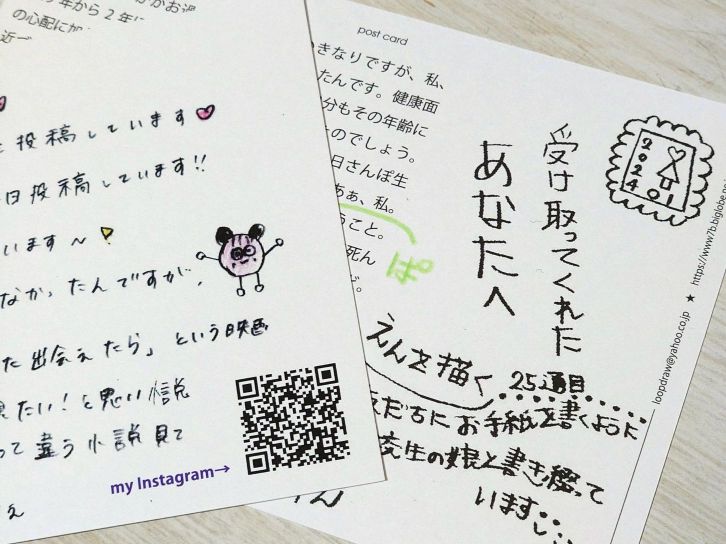 年から2年に
の心配に
近
投稿しています
日投稿しています!!
います〜
なかったんですが、
た出会えたら」という映画
見たい!と思い小説
って違う小説見て
my Instagram→
post card
きなりですが、私、
たんです。健康面
分もその年齢に
のでしょう。
日さんぽ生
あぁ、私。
うこと。
死ん
ぽ
受け取ってくれた
あなたへ
2024 01
えんを描く
25通目
友だちにお手紙を書くように
先生の娘と書き綴って
います
loopdraw@yahoo.co.jp ★ https://www7b.biglobe.ne